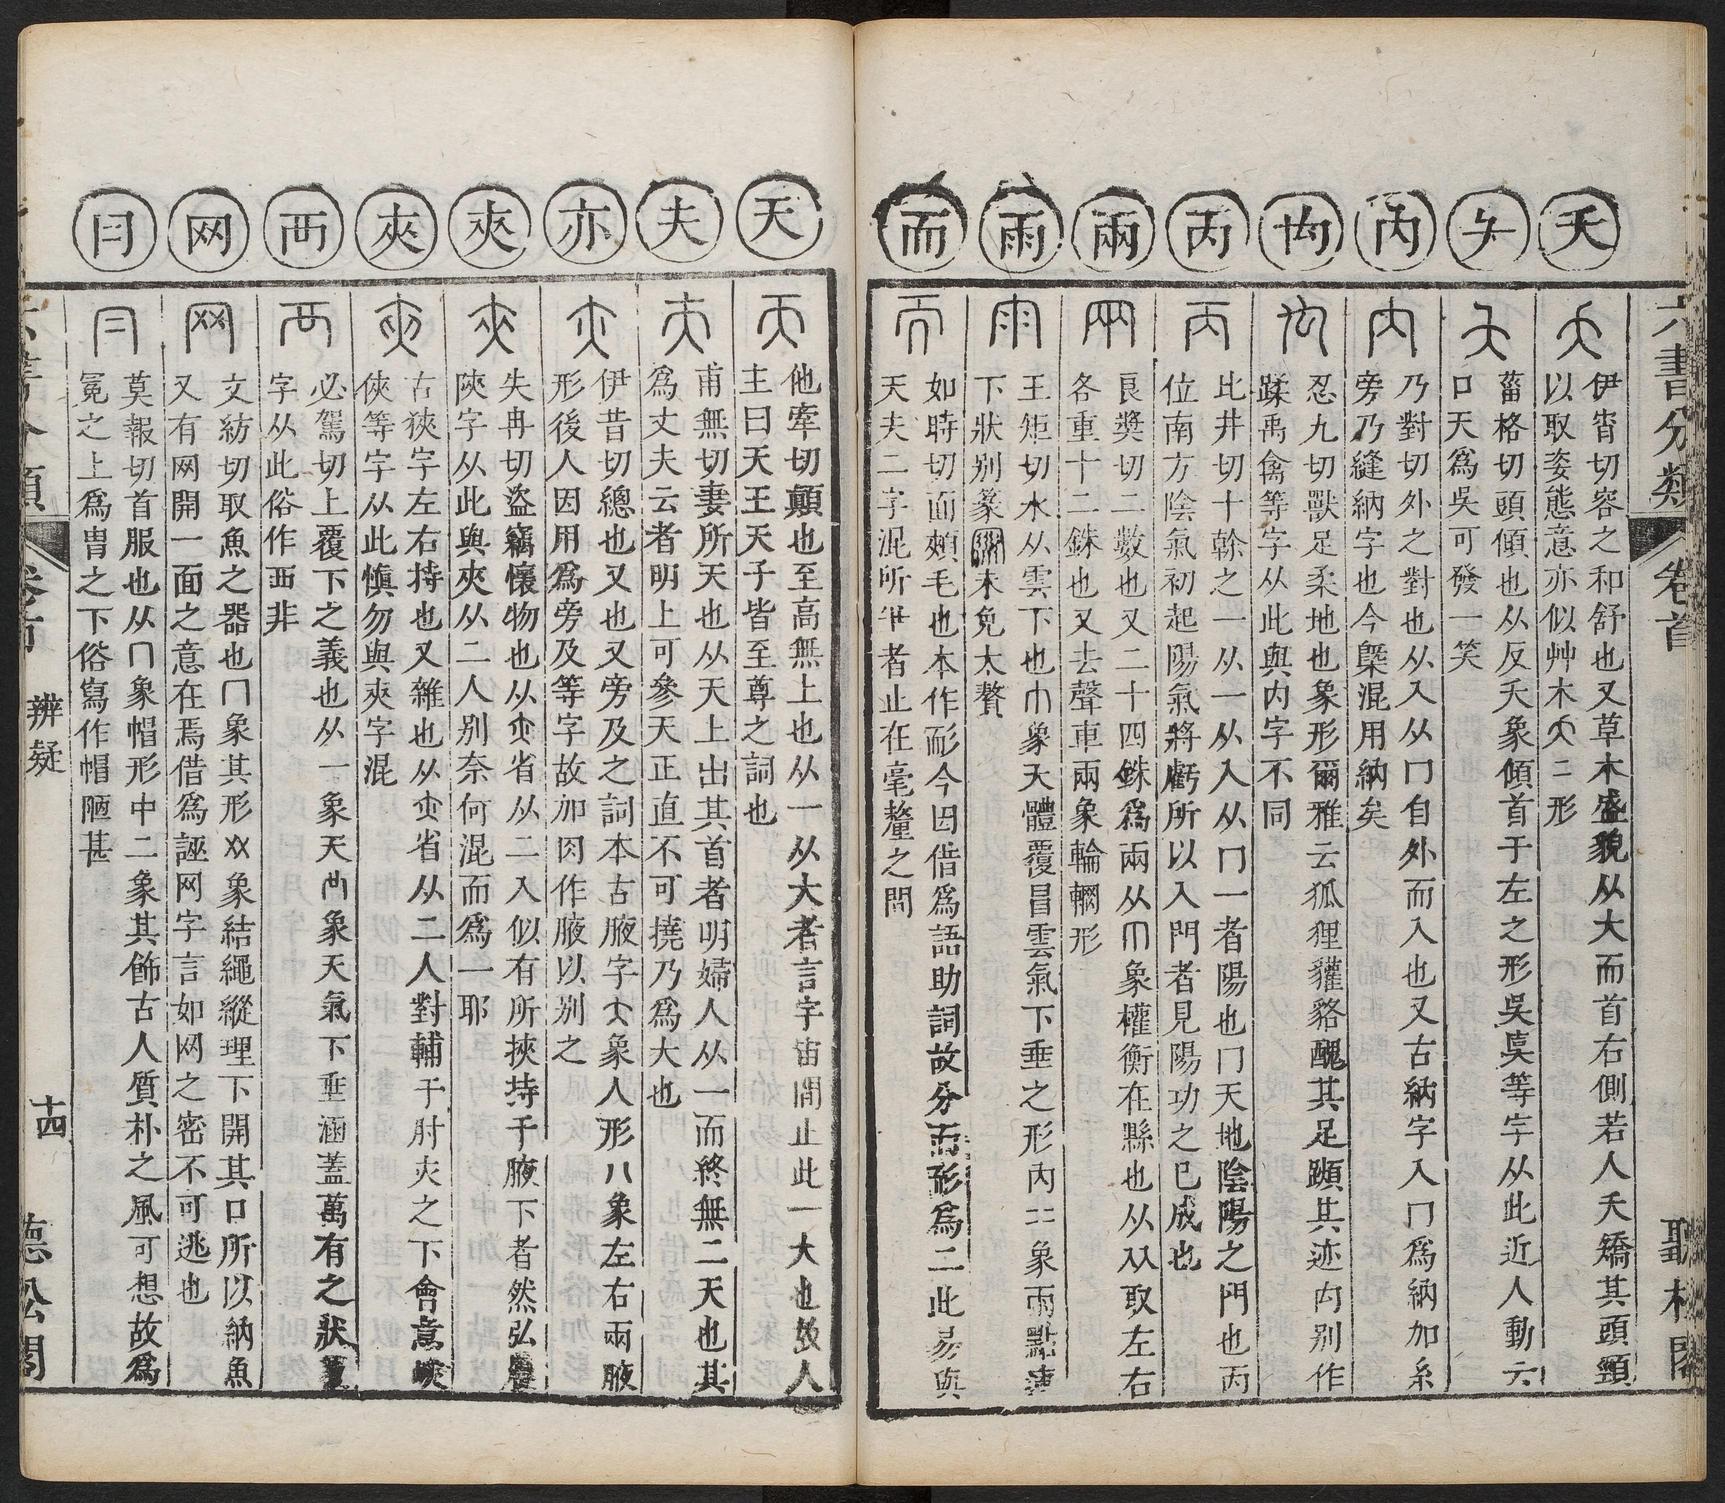 六書分類 卷首 聽松閣
夭
伊宵切容之和舒也又草木盛貌从大而首右側若人夭矯其頭頸
以取姿態意亦似艸木夭二形
夨
菑格切頭傾也从反夭象傾首于左之形吳奊等字从此近人動云
口天爲吳可發一笑
内
乃對切外之對也从入从冂自外而入也又古納字入冂爲納加糸
旁乃縫納字也今槩混用納矣
禸
忍九切獸足柔地也象形爾雅云狐狸貛貉醜其足蹞其迹禸别作
蹂禹禽等字从此與内字不同
丙
比井切十榦之一从一从入从冂一者陽也冂天地陰陽之門也丙
位南方陰氣初起陽氣將虧所以入門者見陽功之已成也
兩
良奬切二數也又二十四銖爲兩从冂象權衡在縣也从从取左右
各重十二銖也又去聲車兩象輪輞形
雨
王矩切水从雲下也巾象天體覆冒雲氣下垂之形内二象雨點
下狀别篆未免太贅
而
如時切面頰毛也本作耏今因借爲語助詞故分而耏爲二此易與
天夫二字混所爭者止在毫釐之間
天
他牽切顛也至高無上也从一从大者言宇宙間止此一大也故人
主曰天王天子皆至尊之詞也
夫
甫無切妻所天也从天上出其首者明婦人从一而終無二天也其
爲丈夫云者明上可參天正直不可撓乃爲大也
亦
伊昔切總也又也又旁及之詞本古腋字大象人形八象左右兩腋
形後人因用爲旁及等字故加肉作腋以别之
㚒
失冉切盜竊懷物也从亦省从二入似有所挾持于腋下者然弘
陝字从此與夾从二人别奈何混而爲一耶
夾
古狹字左右持也又雜也从亦省从二人對輔于肘夾之下會意峽
俠等字从此愼勿與㚒字混
襾
必駕切上覆下之義也从一象天冂象天氣下垂涵蓋萬有之狀
字从此俗作西非
网
文紡切取魚之器也冂象其形㸚象結繩縱理下開其口所以納魚
又有网開一面之意在焉借爲誣网字言如网之密不可逃也
冃
莫報切首服也从冂象帽形中二象其飾古人質朴之風可想故爲
冕之上爲胄之下俗寫作帽陋甚
六書分類 卷首 辨疑 十四 聽松閣